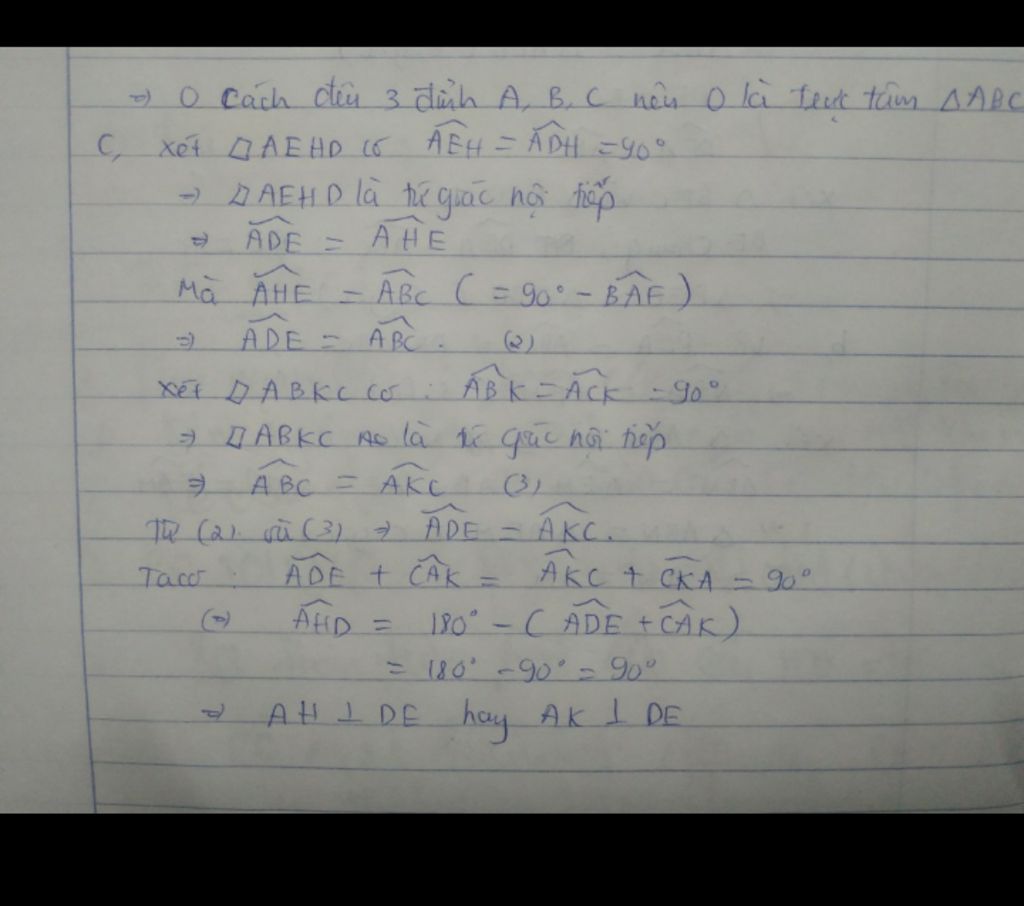 => O cách đều 3 đỉnh A, B, C nên O là trực tâm △ABC
C, xét ▱AEHD có \widehat{AEH} = \widehat{ADH} = 90°
=> ▱AEHD là tứ giác nội tiếp
=> \widehat{ADE} = \widehat{AHE}
Mà \widehat{AHE} = \widehat{ABC} (= 90° - \widehat{BAF})
=> \widehat{ADE} = \widehat{ABC}. (2)
xét ▱ABKC có: \widehat{ABK} = \widehat{ACK} = 90°
=> ▱ABKC là tứ giác nội tiếp
=> \widehat{ABC} = \widehat{AKC} (3)
Từ (2). và (3) => \widehat{ADE} = \widehat{AKC}.
Ta có: \widehat{ADE} + \widehat{CAK} = \widehat{AKC} + \widehat{CKA} = 90°
(=) \widehat{AHD} = 180° - (\widehat{ADE} + \widehat{CAK})
= 180° - 90° = 90°
=> AH ⊥ DE hay AK ⊥ DE